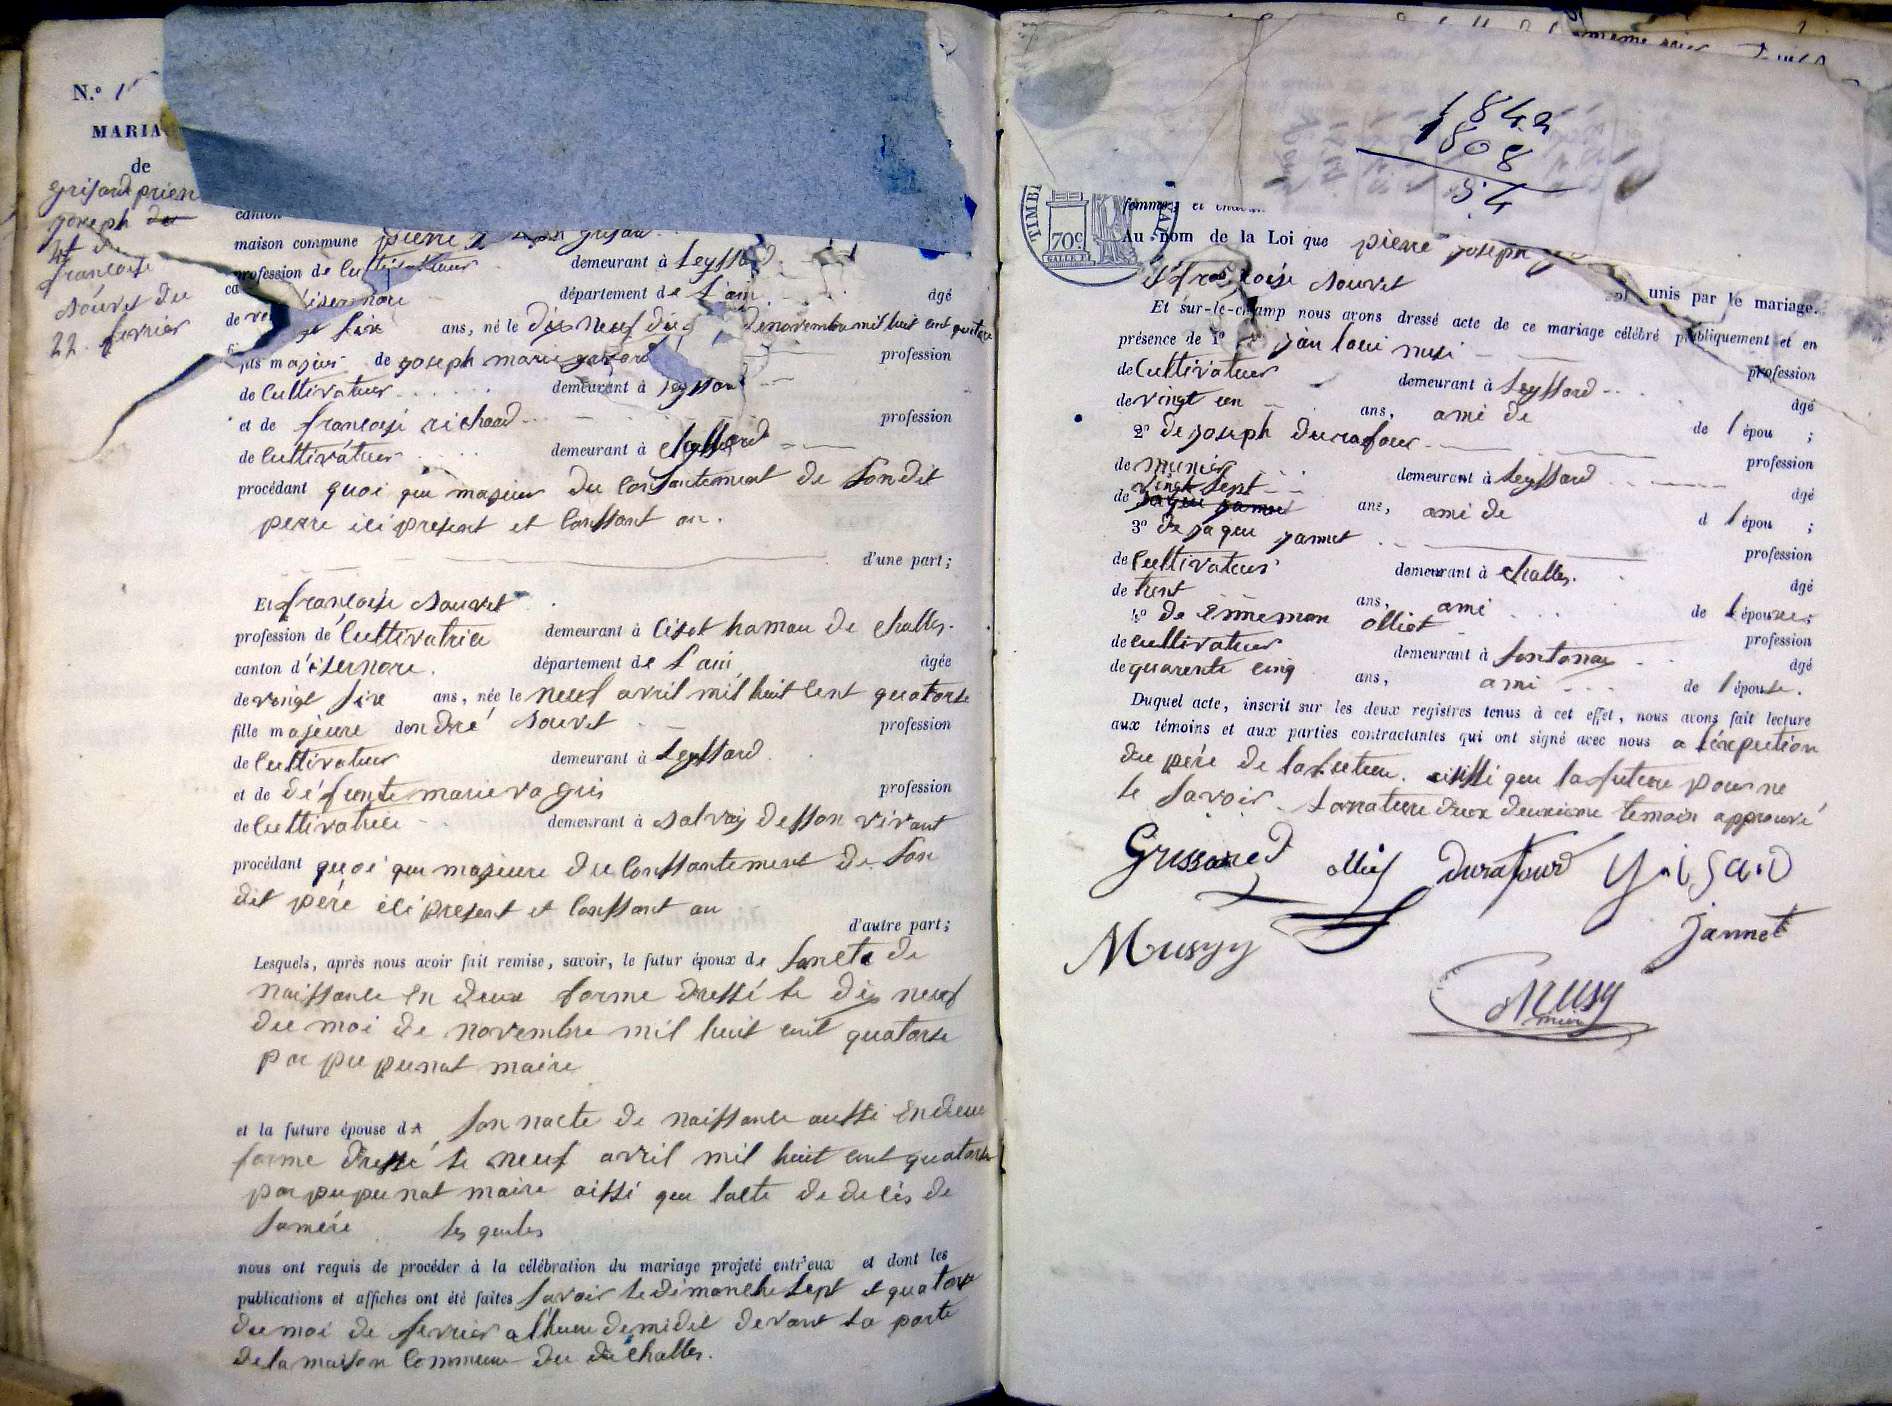 N.º 1
MARIA
de
grisard pierre
joseph de
et de
francoise
douvet du
22 fevrier
canton
maison commune pierre joseph grisard
profession de Cultivateur demeurant à Leyssard
département de L'ain âgé
ans, né le dix neuf novembre mil huit cent quatorze
fils majeur de joseph marie grisard profession
de Cultivateur demeurant à Leyssard
et de francoise richard profession
de Cultivateur demeurant à
procédant quoi que majeur du Consantement de Son dit
perre ici present et Conssant an.
d'une part;
Et francoise douvet
profession de Cultivatrice demeurant à Ciset hamau de challes.
canton d'isernore. département de L'ain âgée
de vingt six ans, née le neuf avril mil huit Cent quatorse
fille majeure dendré douvet profession
de Cultivateur demeurant à Leyssard
et de défunte marie vagris profession
de Cultivatrice demeurant à dalvoy desson vivant
procédant quoi que majeure du Conssantement de Son
dit péré ici present et Conssant an
d'autre part;
Lesquels, après nous avoir fait remise, savoir, le futur époux de Sancte de
naissance en deux forme dressé le dix neuf
du moi de novembre mil huit cent quatorse
par pupunat maire
et la future épouse de Son nacte de naissance aussi en deue
forme dressé le neuf avril mil huit cent quatorse
par pupunat maire aissi que lacte de decés de
Samére les queles
nous ont requis de procéder à la célébration du mariage projeté entr'eux et dont les
publications et affiches ont été faites Savoir le dimanche Sept et quatorse
du moi de fevrier a lheure de midit devant la porte
de la maison Commune du de challes.
1842
1808
34
femme, et chacun
TIMB
70c
Au nom de la Loi que pierre joseph
et francoise douvet
sont unis par le mariage.
Et sur-le-champ nous avons dressé acte de ce mariage célébré publiquement et en
présence de 1º jan loui musi
de Cultivateur demeurant à Leyssard profession
de vingt un ans, ami de âgé
2º de joseph durafour de l'épou ;
de munier demeurant à Leyssard profession
vingt sept
de ans, ami de âgé
3º de jaque jannet d l'épou ;
de Cultivateur demeurant à challes. profession
de trent ans, ami âgé
4º de Ennemon olliet de l'épouse;
de cultivateur demeurant à Sontonax profession
de quarente cinq ans, ami âgé
de l'épouse.
Duquel acte, inscrit sur les deux registres tenus à cet effet, nous avons fait lecture
aux témoins et aux parties contractantes qui ont signé avec nous a Lexpection
du pére de lafuture. aissi que lafuture pour ne
le Savoir. deuxieme temoin approuvé
Grissared olliet Durafourd Grisard
Musyy Jannet
Musy
maire